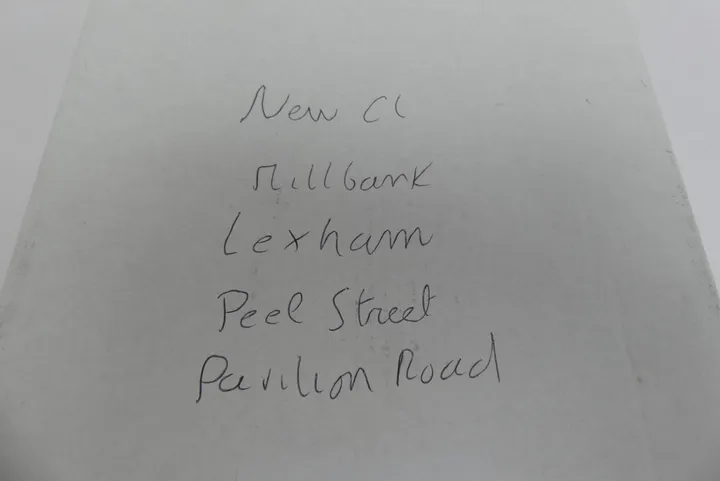 New Cl
Millbank
Lexham
Peel Street
Pavilion Road